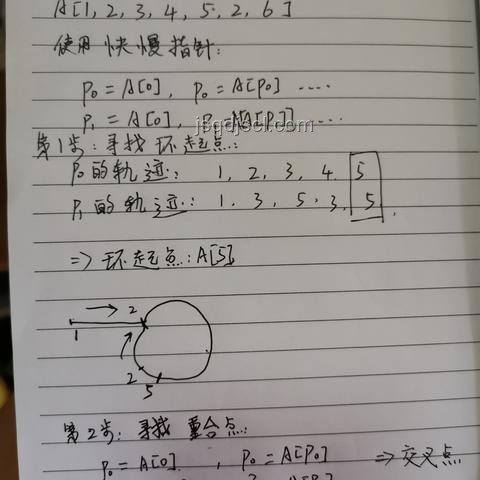 A[1, 2, 3, 4, 5, 2, 6]
使用 快慢指针:
P₀ = A[0], P₀ = A[P₀] ....
P₁ = A[0], P₁ = A[A[P₁]] ....
jsqdjscl.com
第1步: 寻找 环起点:
P₀的轨迹: 1, 2, 3, 4 5
P₁的轨迹: 1. 3, 5, 3, 5.
=> 环起点: A[5]
2
1
2
5
第2步: 寻找 重合点:
P₀ = A[0], P₀ = A[P₀] => 交叉点